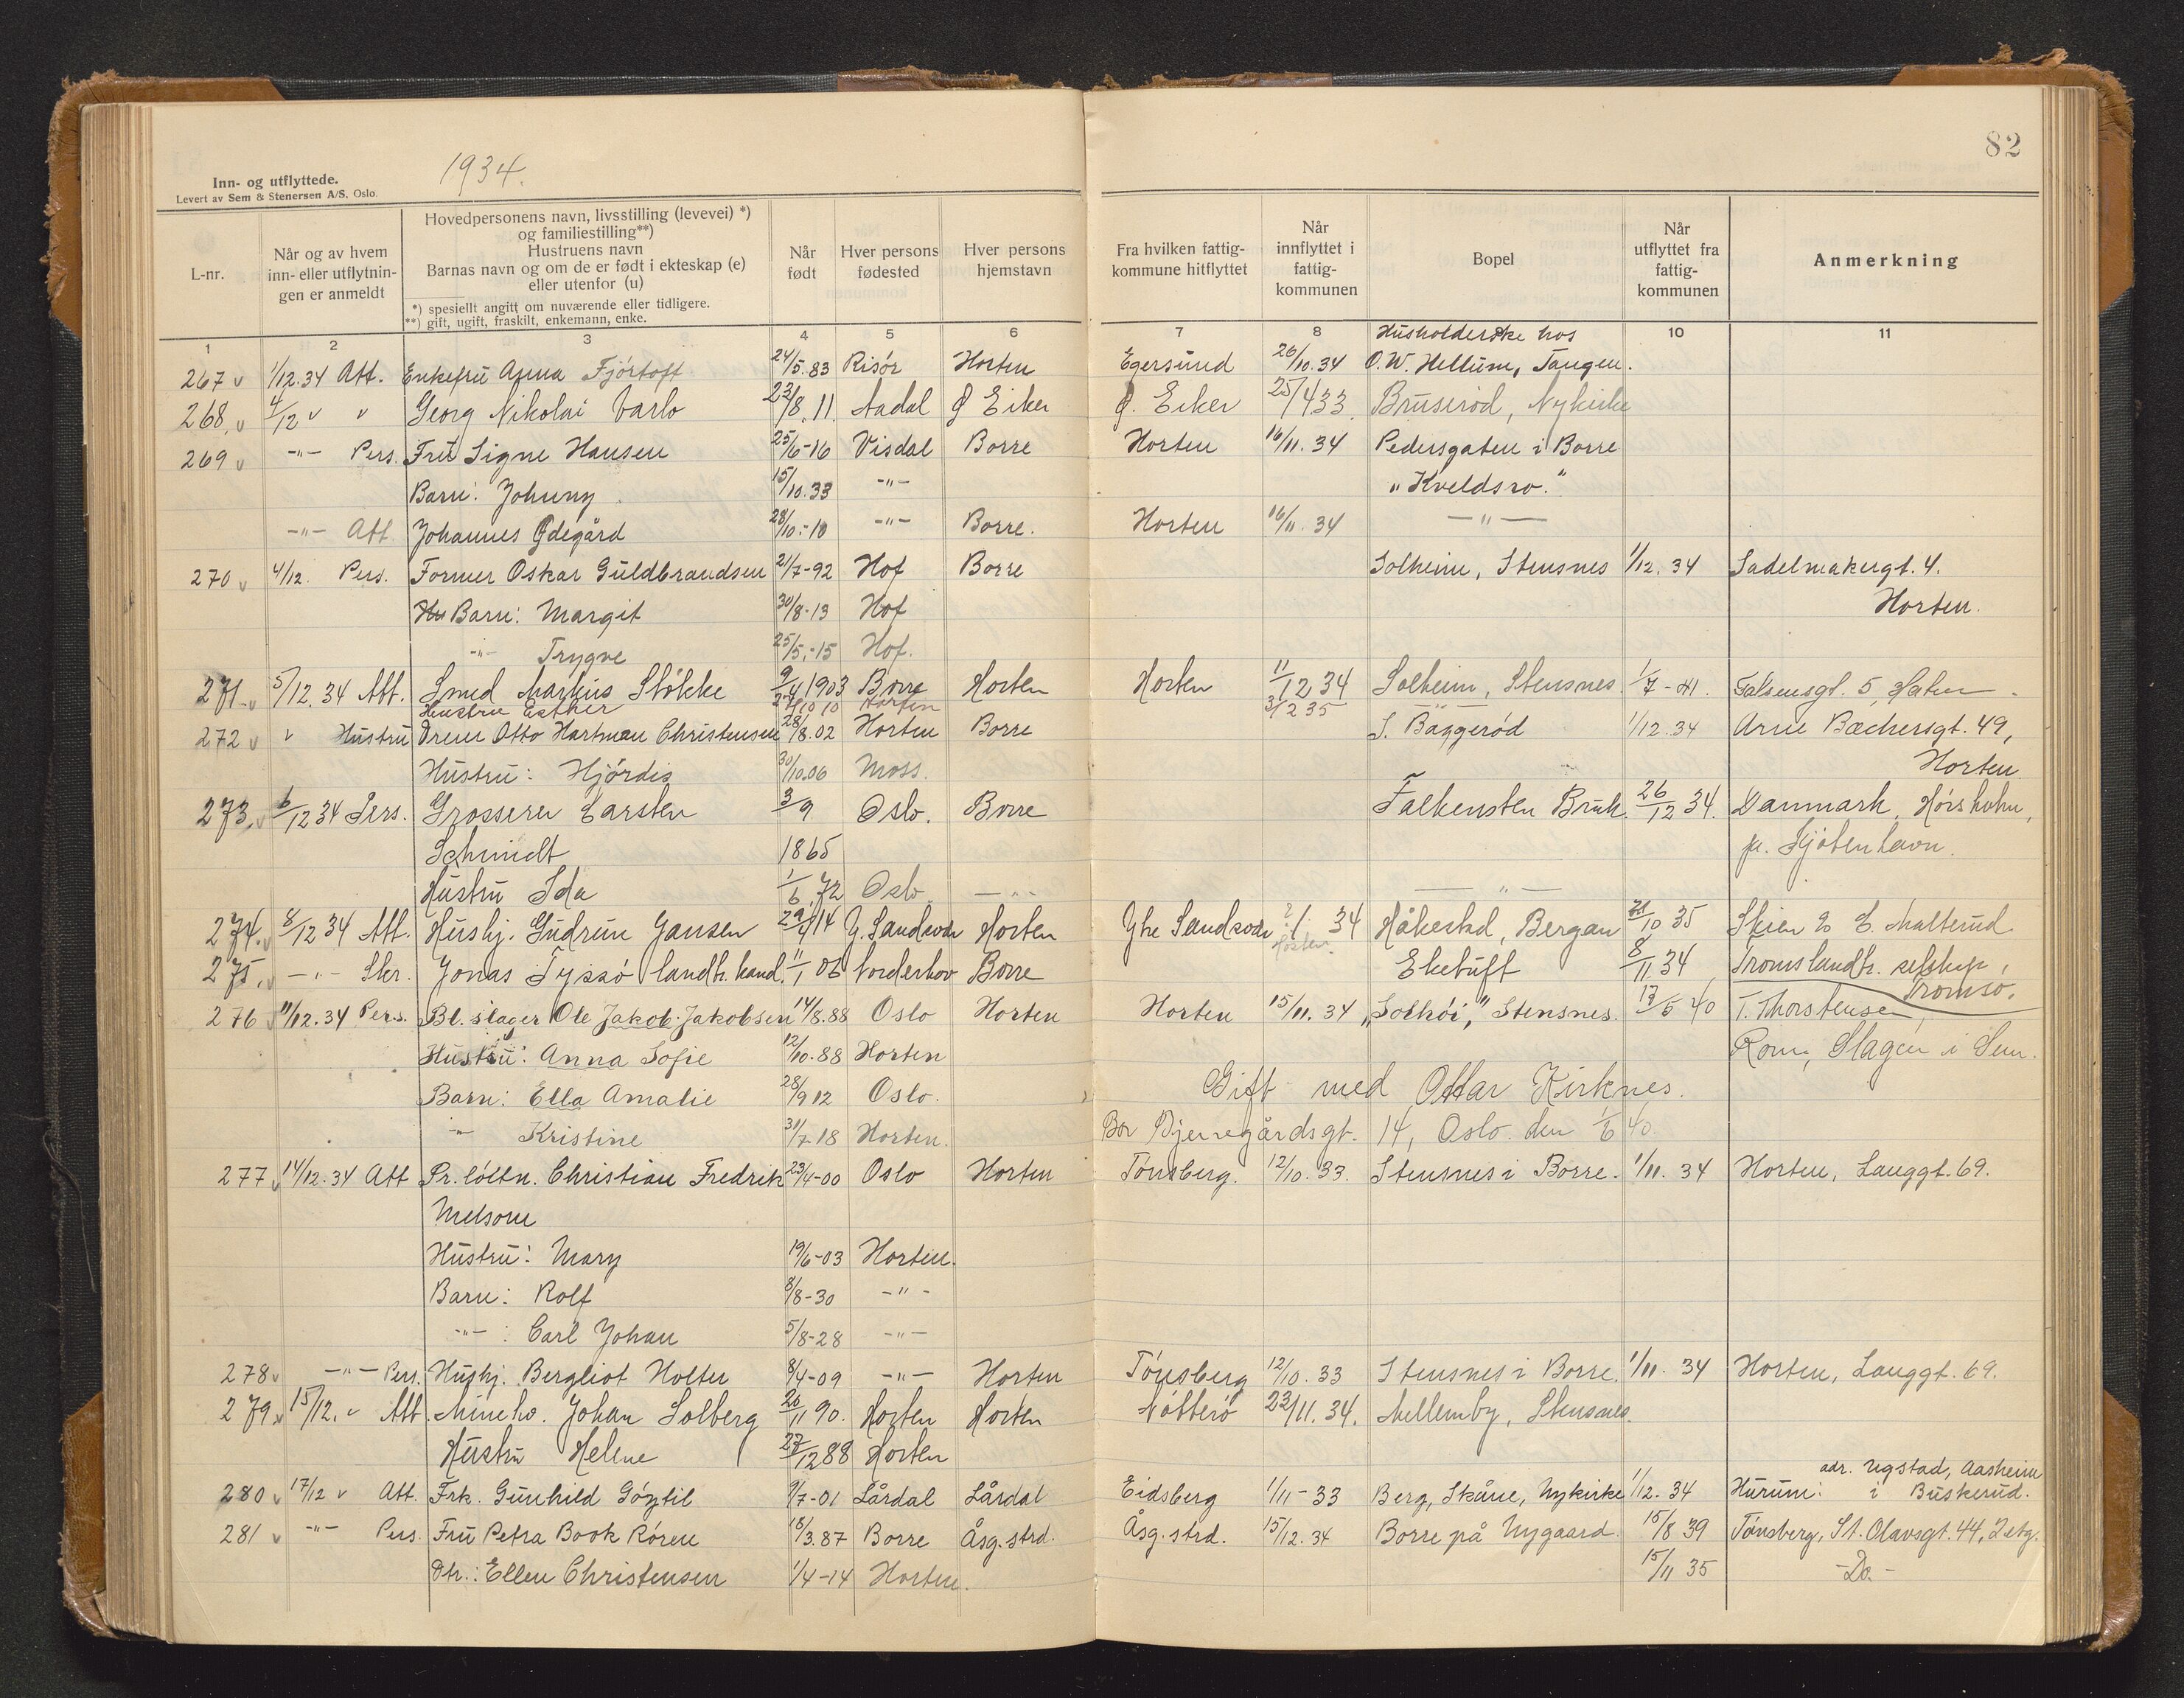 82
1934.
Inn- og utflyttede.
Levert av Sem & Stenersen A/S, Oslo.
L-nr.
Når og av hvem inn- eller utflytnin- gen er anmeldt
Hovedpersonens navn, livsstilling (levevei) *)
og familiestilling**)
Hustruens navn
Barnas navn og om de er født i ekteskap (e)
eller utenfor (u)
*) spesiellt angitt om nuværende eller tidligere.
**) gift, ugift, fraskilt, enkemann, enke.
Når født
Hver persons fødested
Hver persons hjemstavn
Fra hvilken fattig- kommune hitflyttet
Når innflyttet i fattig- kommunen
Bopel
Når utflyttet fra fattig- kommunen
Anmerkning
1 2 3 4 5 6 7 8 9 10 11
Husholderske hos
267 1/12.34 Att. Enkefru Anna Fjörtoft 24/5.83 Risör Horten Egersund 26/10.34 O.W. Hellum, Tangen.
268 4/12 " " Georg Nikolai Varlo 23/8.11 Aadal Ø Eiker Ø. Eiker 25/4 33 Bruserød, Nykirke
269 -"- Pers. Fru Signe Hansen 25/6-16 Visdal Borre Horten 16/11.34 Pedersgaten i Borre
Barn: Johnny 15/10.33 -"- "Kveldsro."
-"- Att. Johannes Ødegård 28/10.-10 -"- Borre. Horten 16/11.34 -"-
270 4/12. Pers. Former Oskar Guldbrandsen 21/7-92 Hof Borre Solheim, Stensnes 1/12.34 Sadelmakergt. 4.
Hu Barn: Margit 30/8-13 Hof Horten.
-"- Trygve 25/5.-15 Hof.
271 5/12.34 Att. Smed Markus Stökke 9/4 1903 Borre Horten Horten 11/12 34 Solheim, Stensnes. 1/7-41. Falsensgt. 5, Horten
Hustru Esther 10 10 Horten 3/12 35 -"-
272 " Hustru Dreier Otto Hartman Christensen 28/8.02 Horten Borre S. Baggerød 1/12.34 Arne Bæchersgt. 49,
Hustru: Hjördis 30/10.06 Moss. Horten
273 6/12 34 Pers. Grosserer Carsten 3/9 Oslo. Borre Falkensten Bruk. 26/12 34. Danmark, Hörsholm,
Schmidt 1865 pr. Kjöbenhavn.
Hustru Ida 1/6 72 Oslo -"- -"-
274. 8/12 34 Att. Hushj. Gudrun Jansen 29/4 14 Y. Sandsvær Horten Ytre Sandsvær 2/1 34 Håkestad, Bergan 21/10 35 Skien to E. Malterud
Høsten.
275. -"- Skr. Jonas Tyssö landbr. kand. 11/1 06 Norderhov Borre Eketuft 8/11.34 Troms landbr. selskap,
Tromsö.
276 11/12.34 Pers. Bl. slager Ole Jakob Jakobsen 14/8.88 Oslo Horten Horten 15/11.34 "Solhöi," Stensnes. 17/5 40 T. Thorstensen,
Hustru: Anna Sofie 12/10.88 Horten Rom, Slagen i Sem.
Barn: Ella Amalie 28/9 12 Oslo. Gift med Ottar Kirknes.
-"- Kristine 31/7-18 Horten. Bor Bjerregårdsgt. 14, Oslo. den 1/6 40.
277 14/12.34 Att Pr. löitn. Christian Fredrik 23/4-00 Oslo Horten Tönsberg. 12/10.33. Stensnes i Borre. 1/11.34 Horten, Langgt. 69.
Melsom
Hustru: Mary 19/6-03 Horten.
Barn: Rolf 8/8-30 -"-
-"-: Carl Johan 5/8-28 -"-
278 -"- Pers. Hushj. Bergliot Holter 8/4-09 -"- Horten Tönsberg 12/10.33 Stensnes i Borre. 1/11.34 Horten, Langgt. 69.
279 15/12. " Att. Mineho. Johan Solberg 20/11 90. Horten Horten Nötterö 23/11.34. Mellemby, Stensnes.
Hustru Helene 27/12 88 Horten
adr. Ugstad, Aasheim
280 17/12 " Att. Frk. Gunhild Göytil 9/7-01 Lårdal Lårdal Eidsberg 1/11-33 Berg, Skåne, Nykirke 1/12.34 Hurum: i Buskerud.
281 -"- Pers. Fru Petra Book Rören 18/3.87 Borre Åsg.strd. Åsg.strd. 15/12.34 Borre på Nygaard. 15/8 39 Tönsberg, St. Olavsgt. 44, 2 etg.
Dtr.: Ellen Christensen 1/4-14 Horten. 15/11 35 -Do.-